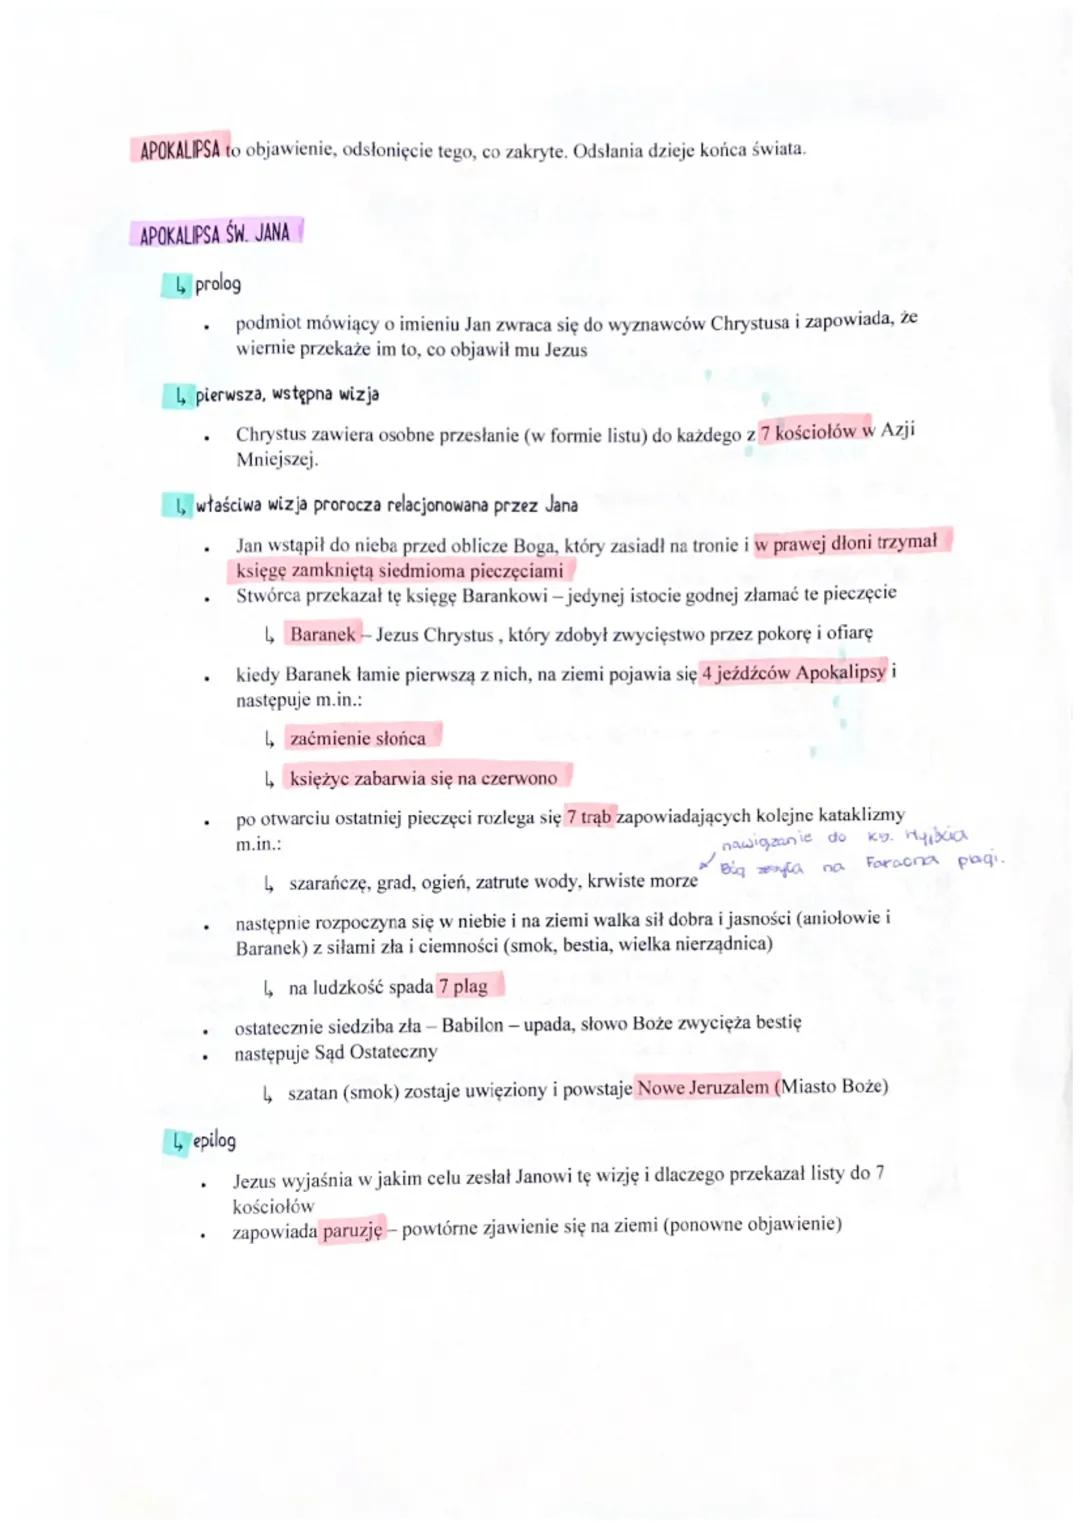 APOKALIPSA to objawienie, odsłonięcie tego, co zakryte. Odsłania dzieje końca świata.
APOKALIPSA ŚW. JANA
↳ prolog
• podmiot mówiący o imieniu Jan zwraca się do wyznawców Chrystusa i zapowiada, że
wiernie przekaże im to, co objawił mu Jezus
↳ pierwsza, wstępna wizja
• Chrystus zawiera osobne przesłanie (w formie listu) do każdego z 7 kościołów w Azji
Mniejszej.
↳ właściwa wizja prorocza relacjonowana przez Jana
• Jan wstąpił do nieba przed oblicze Boga, który zasiadł na tronie i w prawej dłoni trzymał
księgę zamkniętą siedmioma pieczęciami
• Stwórca przekazał tę księgę Barankowi – jedynej istocie godnej złamać te pieczęcie
↳ Baranek – Jezus Chrystus , który zdobył zwycięstwo przez pokorę i ofiarę
• kiedy Baranek łamie pierwszą z nich, na ziemi pojawia się 4 jeźdźców Apokalipsy i
następuje m.in.:
↳ zaćmienie słońca
↳ księżyc zabarwia się na czerwono
• po otwarciu ostatniej pieczęci rozlega się 7 trąb zapowiadających kolejne kataklizmy
m.in.:
nawiązanie do Ks. Wyjścia
Bóg zesyła na Faraona plagi.
↳ szarańczę, grad, ogień, zatrute wody, krwiste morze
• następnie rozpoczyna się w niebie i na ziemi walka sił dobra i jasności (aniołowie i
Baranek) z siłami zła i ciemności (smok, bestia, wielka nierządnica)
↳ na ludzkość spada 7 plag
• ostatecznie siedziba zła – Babilon – upada, słowo Boże zwycięża bestię
• następuje Sąd Ostateczny
↳ szatan (smok) zostaje uwięziony i powstaje Nowe Jeruzalem (Miasto Boże)
↳ epilog
• Jezus wyjaśnia w jakim celu zesłał Janowi tę wizję i dlaczego przekazał listy do 7
kościołów
• zapowiada paruzję – powtórne zjawienie się na ziemi (ponowne objawienie)